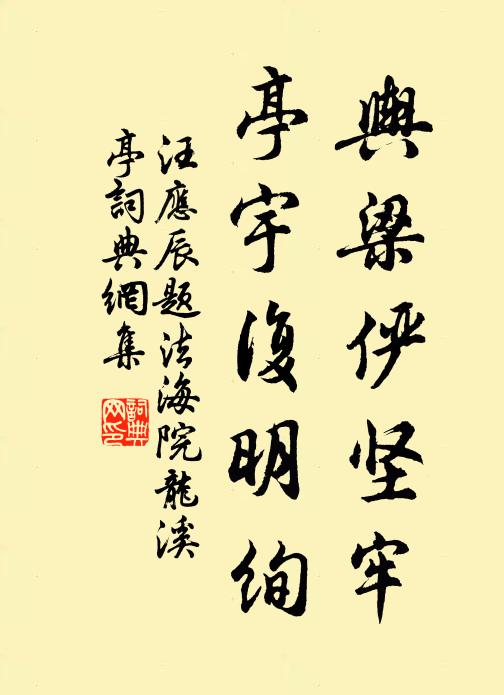 輿梁俨坚牢
亭宇復明绚
汪應辰题法海院龍溪
亭詞典網集
詞典
网印